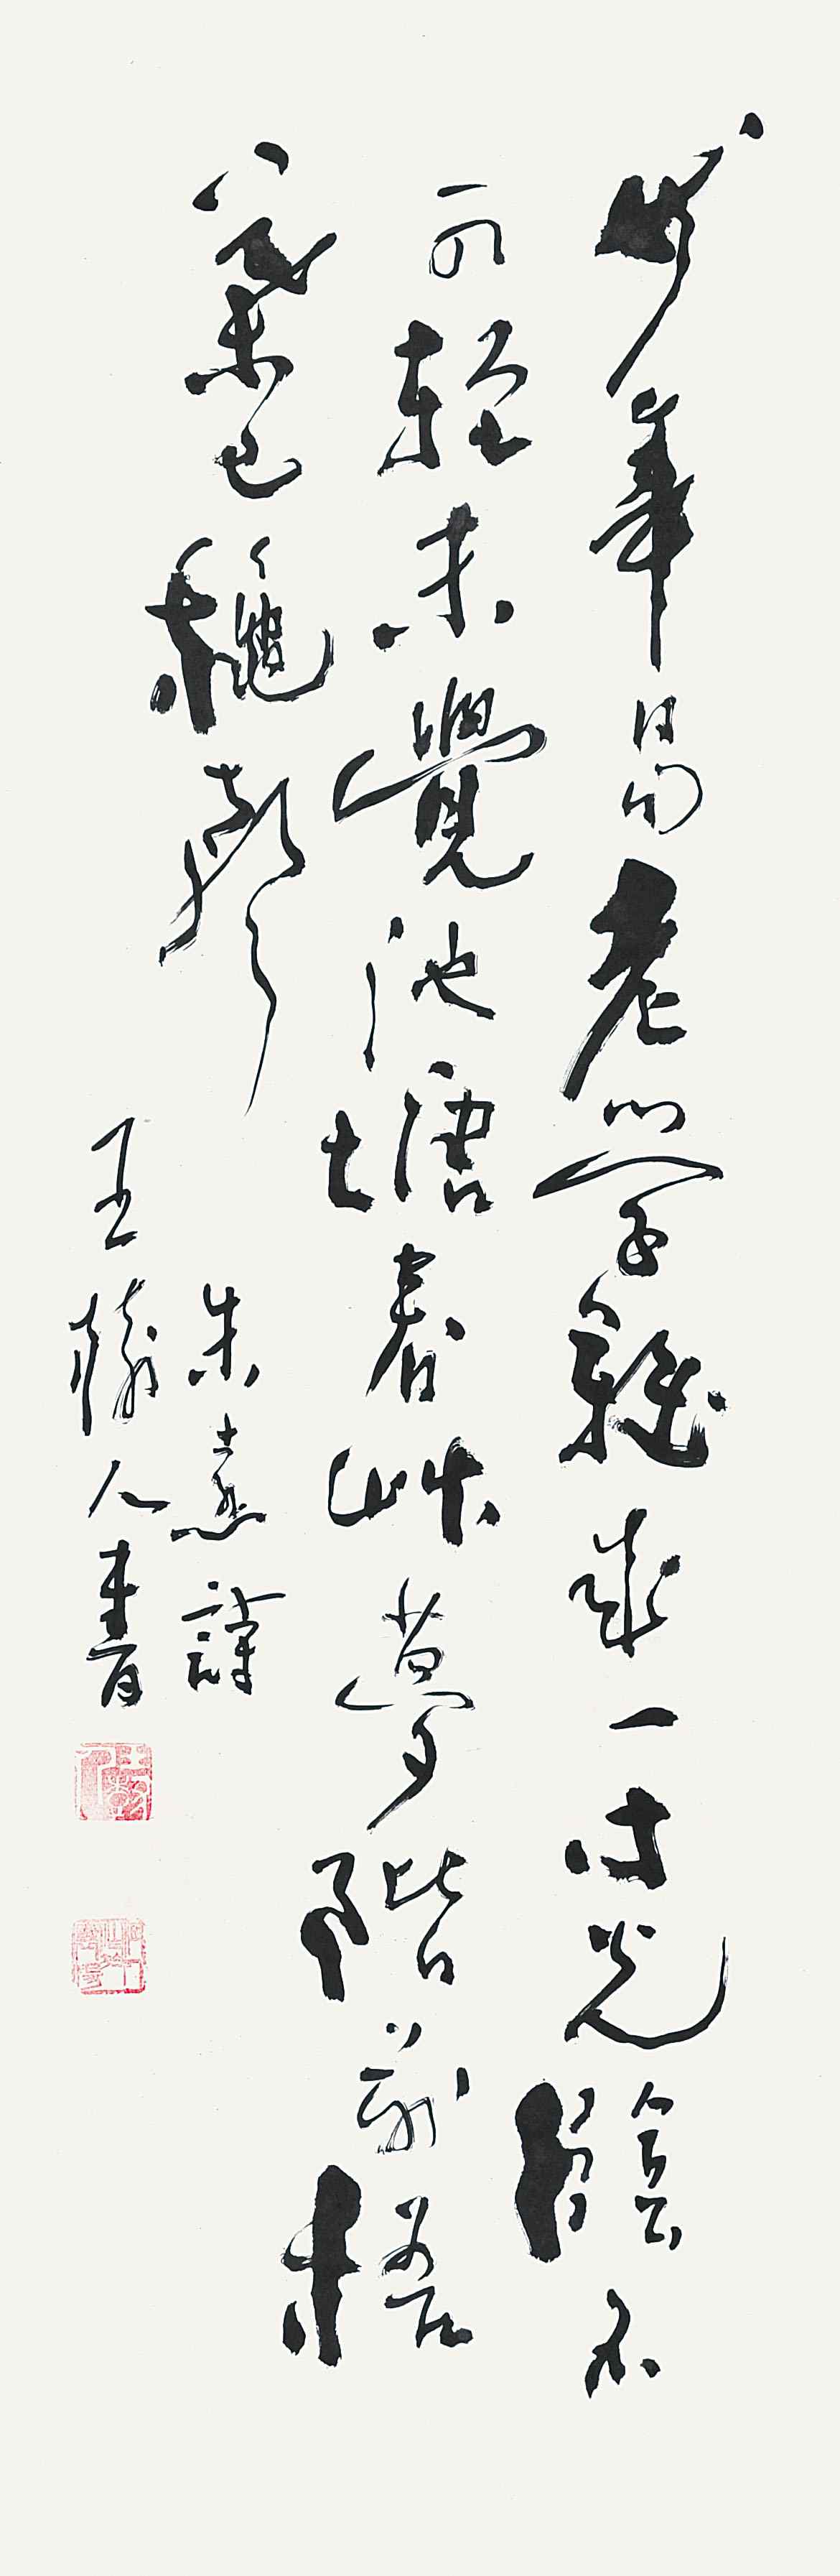 少年易老学難成一寸光陰不
可軽未覺池塘春艸夢階前梧
葉已龝聲
朱熹詩
王人書